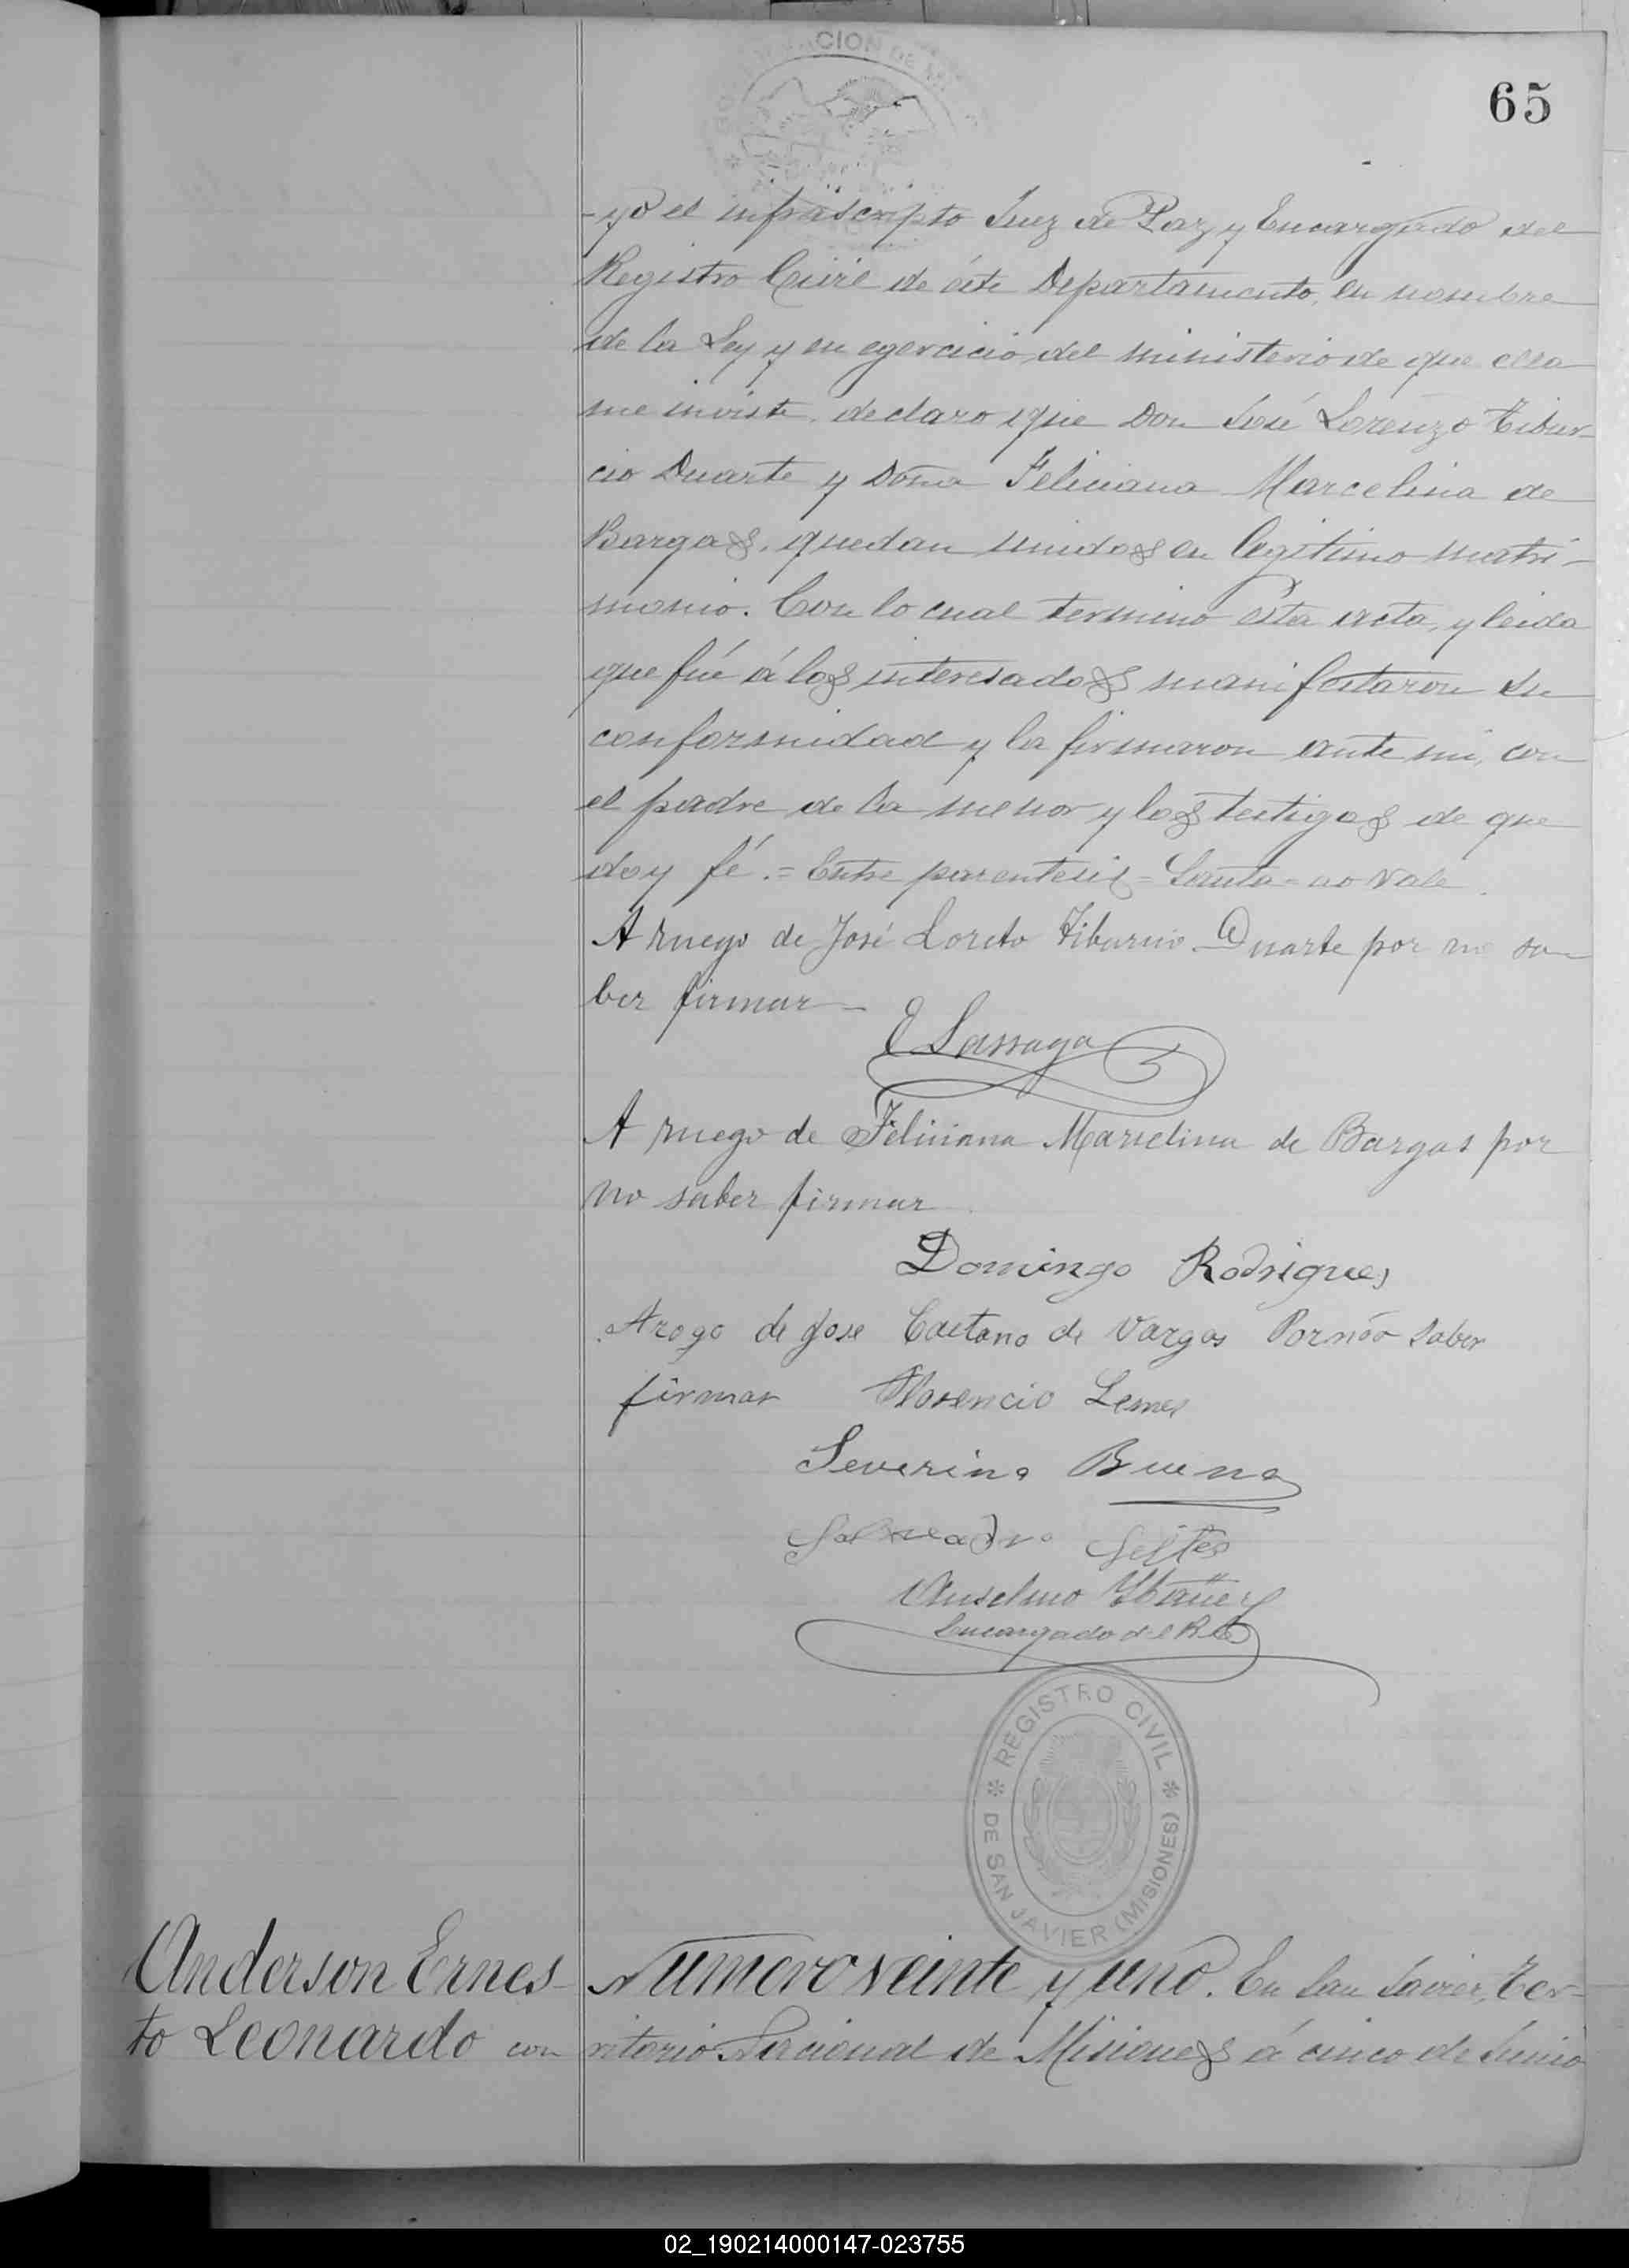 65
- yo el infrascripto Juez de Paz y Encargado del
Registro Civil de éste Departamento, en nombre
de la Ley y en egercicio del ministerio de que ella
me inviste, declaro que Don José Lorenzo Tibur-
cio Duarte y Doña Feliciana Marcelina de
Bargas, quedan unidos en legitimo matri-
monio. Con lo cual termino esta acta, y leida
que fué á los interesados manifestaron su
conformidad y la firmaron ante mi, con
el padre de la menor y los testigos de que
doy fé. = Entre parentesis = Santa - no vale.
A ruego de José Loreto Tiburcio Duarte por no sa-
ber firmar —
E Sarraga
A ruego de Feliciana Marcelina de Bargas por
no saber firmar
Domingo Rodrigues
Arogo de Jose Caetano de Vargas Pornóo saber
firmar Florencio Lemes
Severino Bueno
Anselmo Ybañez
Encargado del R C
REGISTRO CIVIL
DE SAN JAVIER (MISIONES)
Anderson Ernes-
to Leonardo con
Numero veinte y uno. En San Javier, Ter-
ritorio Nacional de Misiones á cinco de Junio
02_190214000147-023755